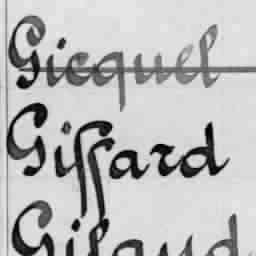 Gicquel
Giffard
Giraud